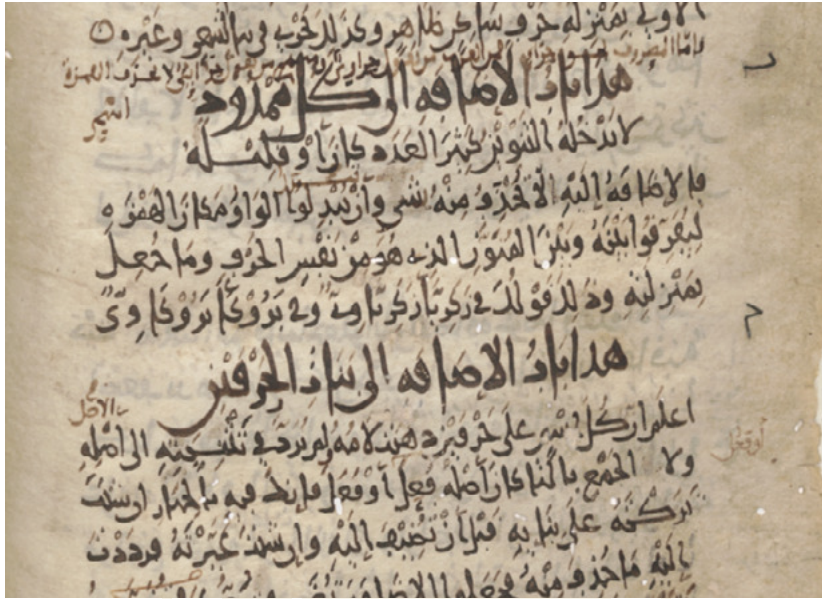 الاولى بمنزله حرف ساكن ظاهر وكذلك تجرى في بنا الشعر وغيره
هذا باب الاضافه الى كل ممدود
اسم
لا يدخله التنوين كثير العدد كان او قليله
فالاضافه اليه الا تحذف منه شى وان تبدلوا الواو مكان الهمزه
ليفرقوا بينه وبين المنون الذى هو من نفس الحرف وما جعل
بمنزلته وذلك قولك في زكريا زكرياوى وفى بروكا بروكاوى
هذا باب الاضافه الى بنات الحرفين
الاصل
اعلم ان كل اسم على حرفين ذهبت لامه ولم يرد في تثنيته الى اصله
او فعل
ولا الجمع بالتا كان اصله فعل او فعل فانك فيه بالخيار ان شئت
تركته على بنايه قبل ان تضيف اليه وان شئت غيرته فرددت
اليه ما حذف منه فجعلوا الاضافه